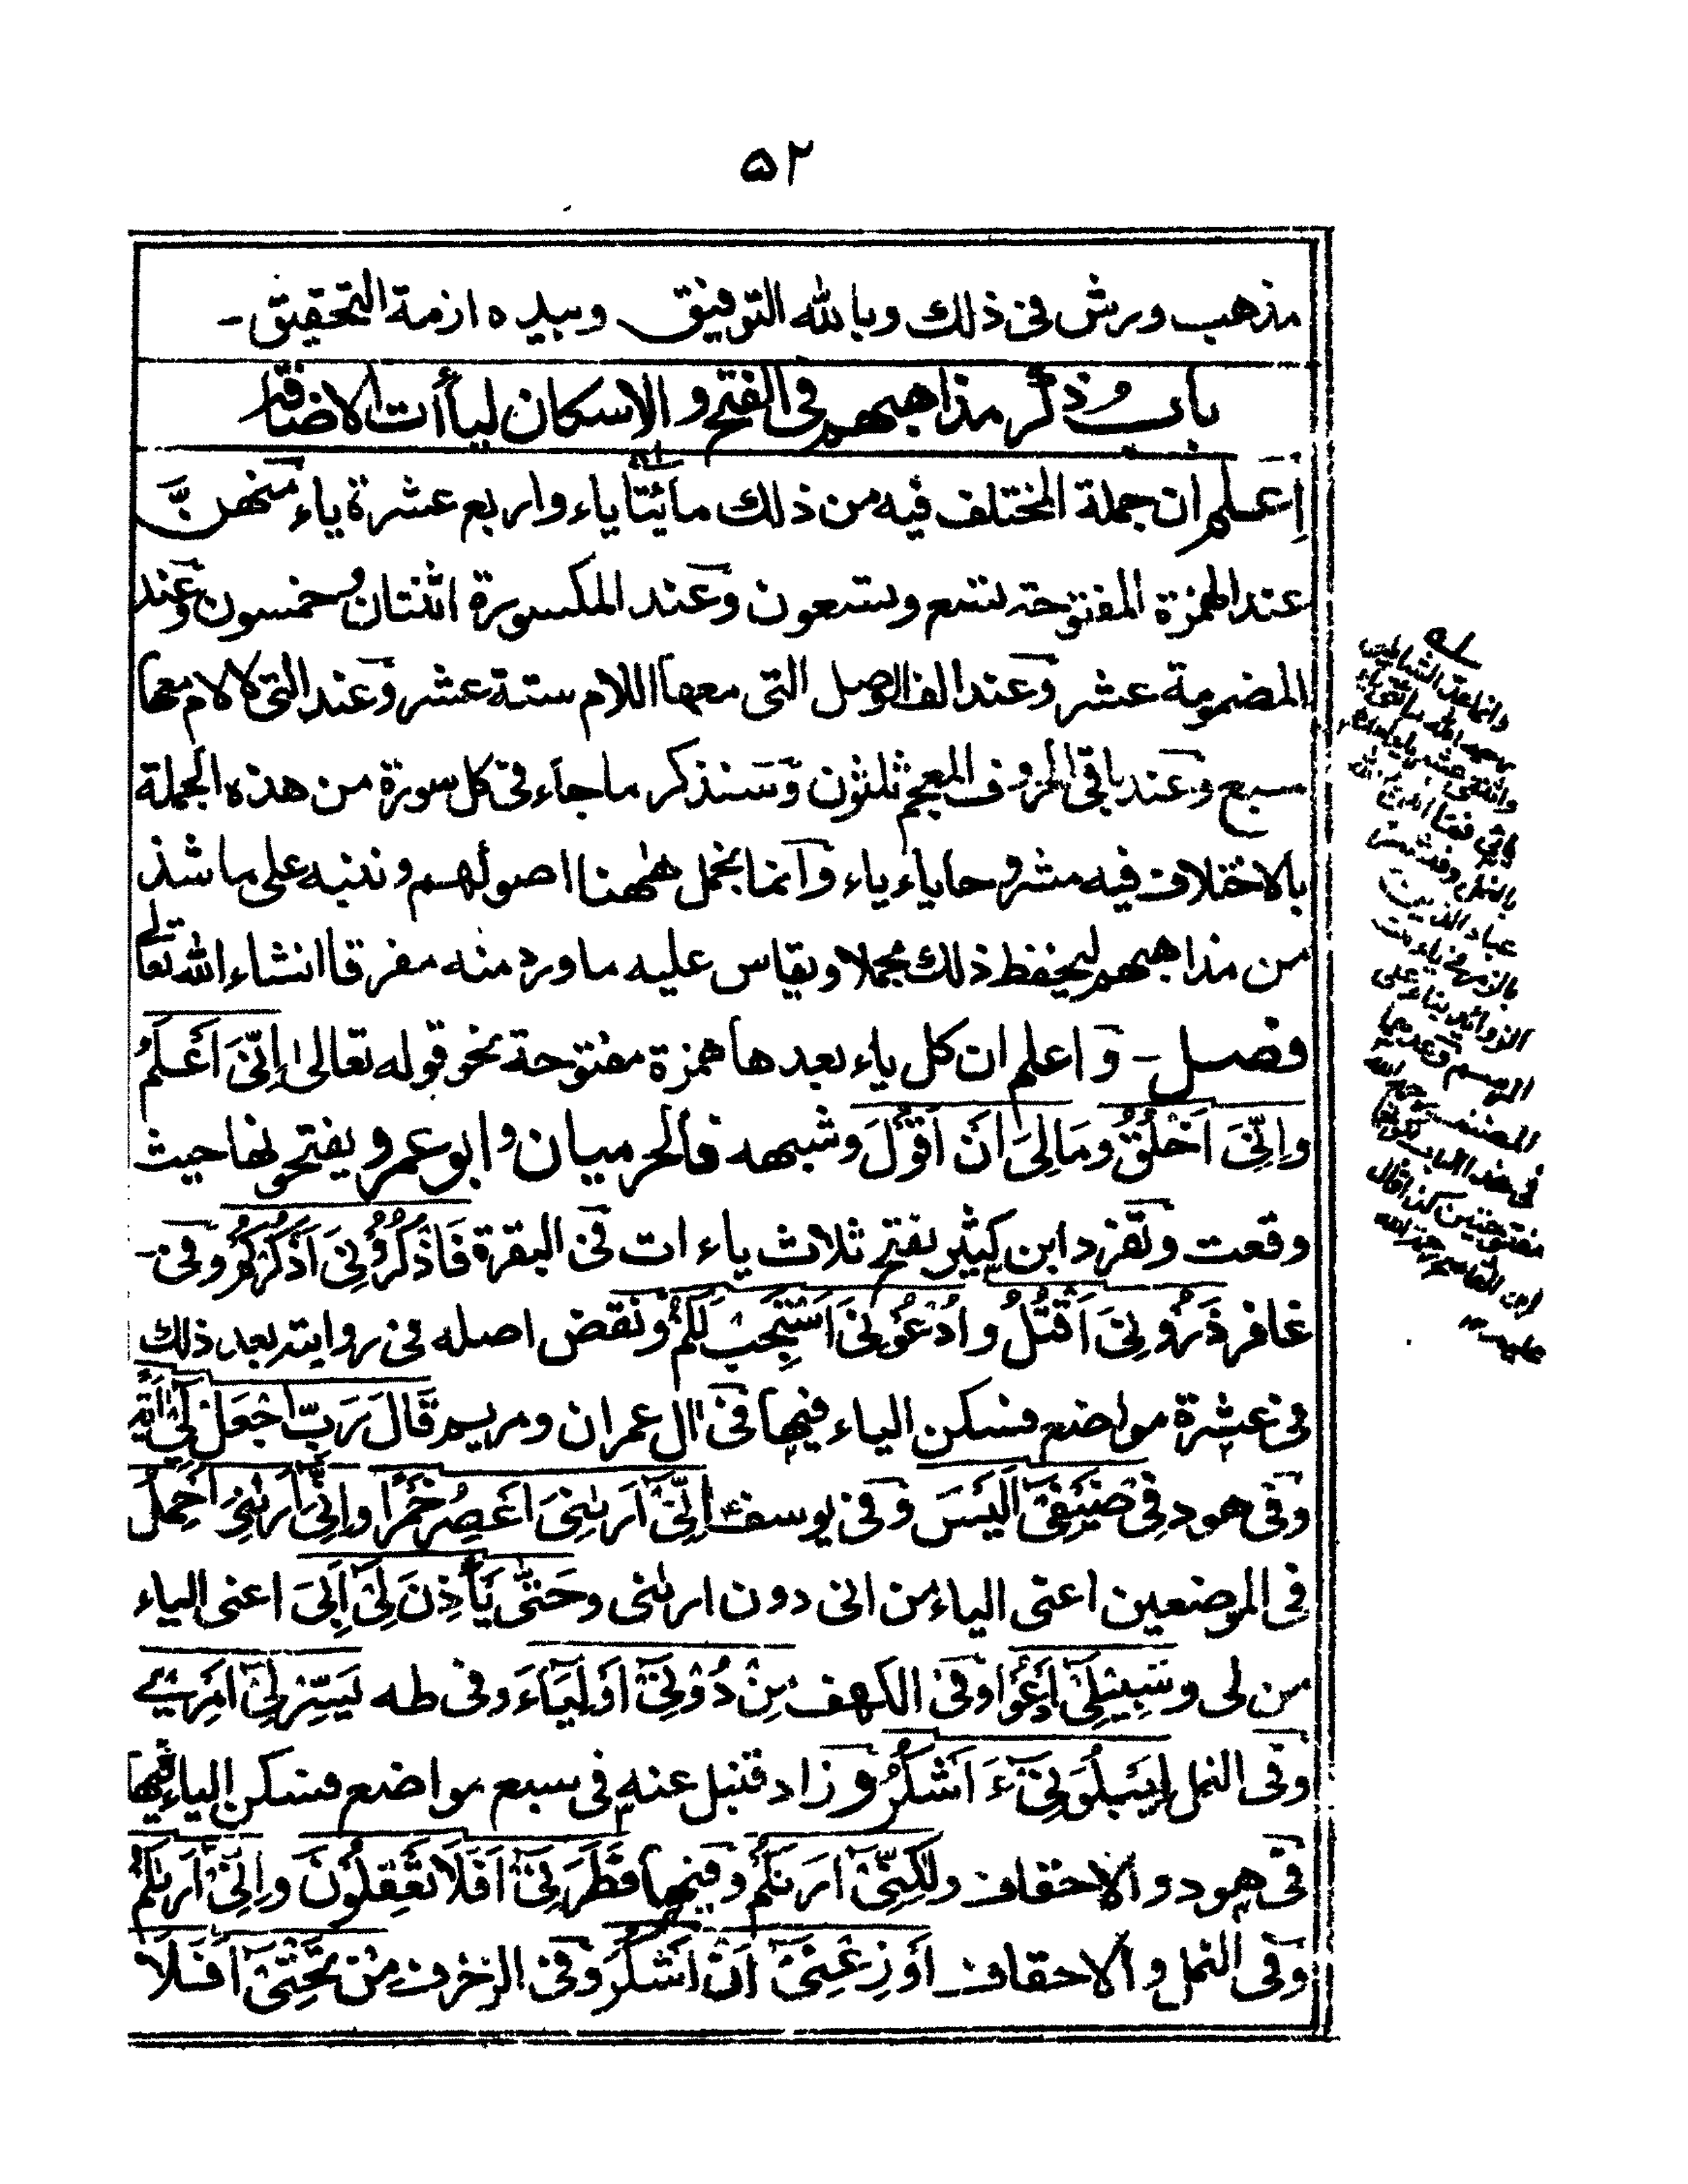 ۵۲
مذهب ورش فى ذلك وبالله التوفيق وبيده ازمة التحقيق-
باب ذكر مذاهبهم فى الفتح والاسكان لياأت الاضافة
اِعَلم ان جملة المختلف فيه من ذلك مائيتا ياء واربع عشرة ياء منهنَّ
عند الهمزة المفتوحة تسع وتسعون وعند المكسورة اثنتان وخمسون وعند
المضمومة عشر وعند الف الوصل التى معها اللام ستة عشر وعند التى لا لام معها
سبع وعند باقى الحروف المعجم ثلثون وَسَنذكر ما جاء فى كل سورة من هذه الجملة
بالاختلاف فيه مشروحا ياء ياء وانما نجمل ههنا اصولهم وننبه على ما شذ
من مذاهبهم ليحفظ ذلك مجملا ويقاس عليه ما ورد منه مفرقا انشاء الله تعالے
فصل- واعلم ان كل ياء بعدها همزة مفتوحة نحو قوله تعالى اِنِّىَ اَعْلَمُ
واِنِّىَ اَخْلُقُ ومَا لِىَ اَنْ اَقُوْلَ وشبهه فالحرميان وابو عمرو يفتحونها حيث
وقعت وتفرد ابن كثير بفتح ثلاث ياءات فى البقرة فَاذْكُرُوْنِىَ اَذْكُرْكُمْ وفى-
غافر ذَرُوْنِىَ اَقْتُلُ وادْعُوْنِىَ اَسْتَجِبْ لَكُمْ ونقض اصله فى روايته بعد ذلك
فى عشرة مواضع فسكن الياء فيها فى ال عمران ومريم قَالَ رَبِّ اجْعَلْ لِّىْ اٰيَةً
وفى هود فِىْ ضَيْفِىْ اَلَيْسَ وفى يوسف اِنِّىْ اَرٰىنِىَ اَعْصِرُ خَمْرًا واِنِّىْ اَرٰىنِىَ اَحْمِلُ
فى الموضعين اعنى الياء من انى دون ارىنى وحَتّٰى يَأْذَنَ لِىْ اَبِىَ اعنى الياء
من لى وسَبِيْلِىْ اَدْعُوْا وفى الكهف مِنْ دُوْنِىْ اَوْلِيَاءَ وفى طه يَسِّرْ لِىْ اَمْرِىْ
وفى النمل لِيَبْلُوَنِىْ ءَ اَشْكُرُ وزاد قنبل عنه فى سبع مواضع فسكن الياء فيها
فى هود والاحقاف ولٰكِنِّىْ اَرٰىكُمْ وفيها فَطَرَنِىْ اَفَلَا تَعْقِلُوْنَ واِنِّىْ اَرٰىكُمْ
وفى النمل والاحقاف اَوْزِعْنِىْ اَنْ اَشْكُرَ وفى الزخرف مِنْ تَحْتِىْ اَفَلَا
وانما عدّ الشاطبى
رحمه الله مائتى ياء
بالنمل وفبشر
عباد الذين
الزوائد بناء على
الرسم
المصنف رحمه الله
فى هذا الباب
مفتوحتين كذا قال
ابن القاصح رحمة الله
عليه ١٢